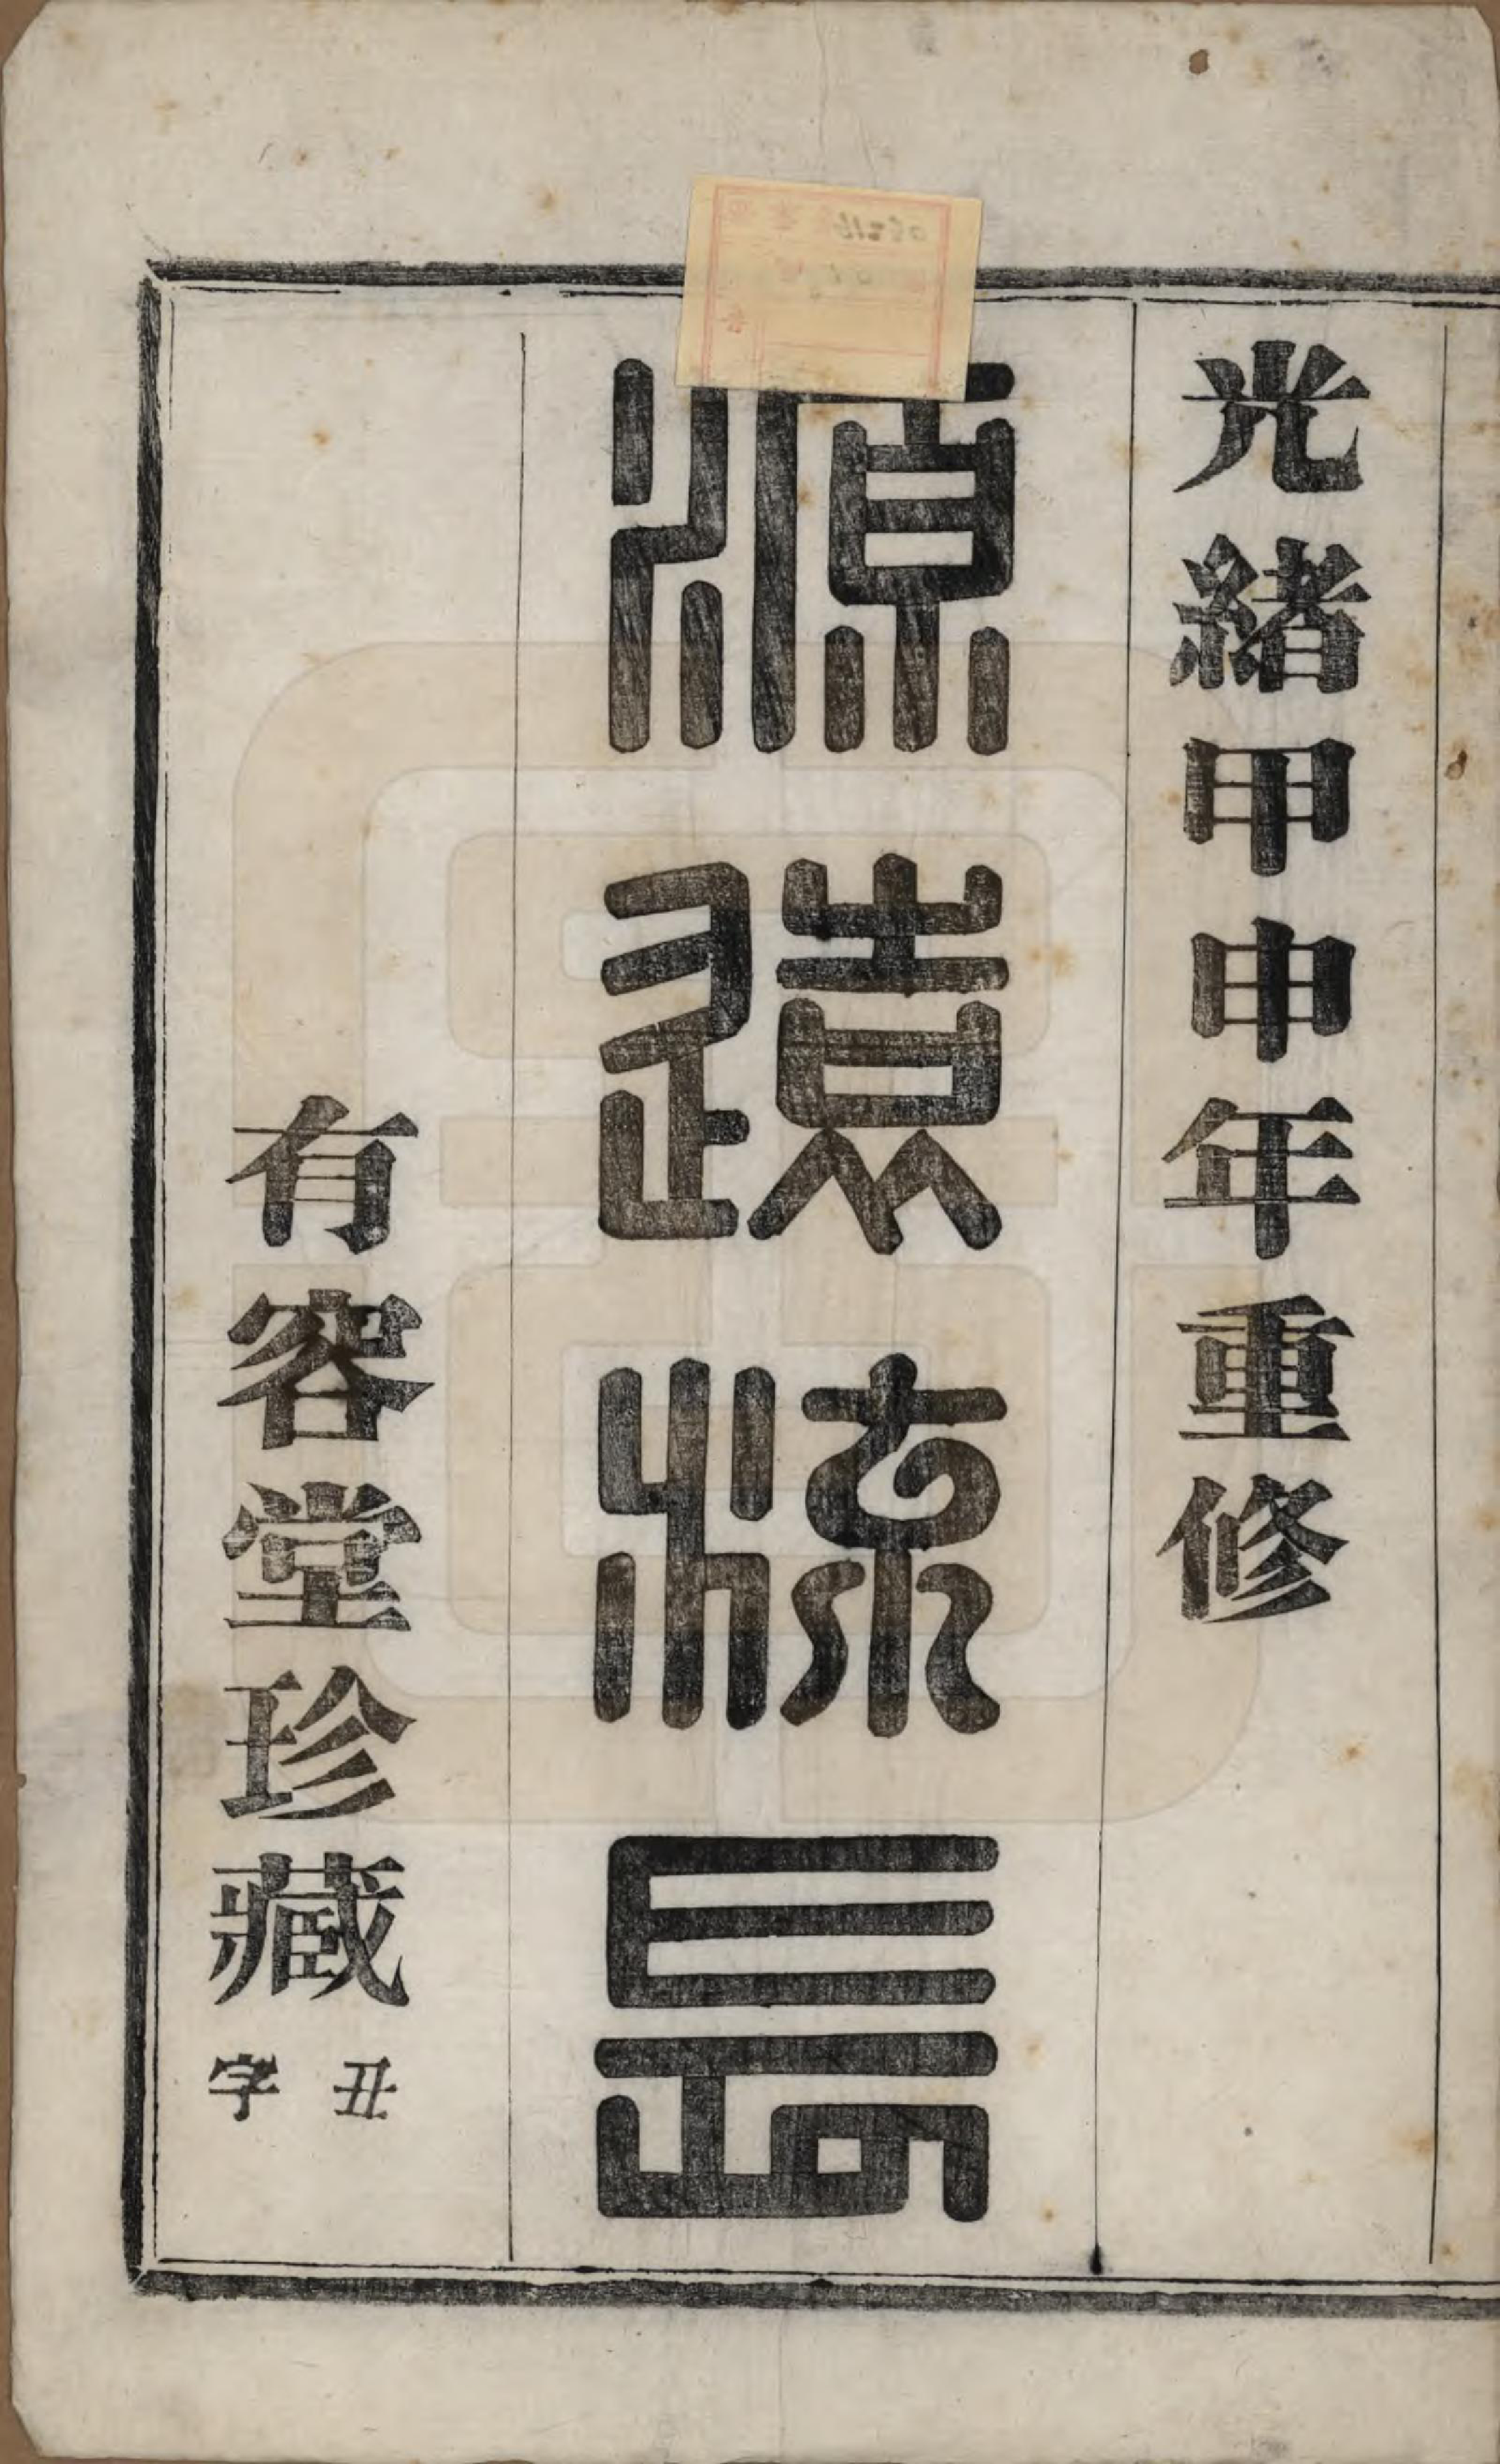 光緒甲申年重修
源遠流長
有容堂珍藏
丑字